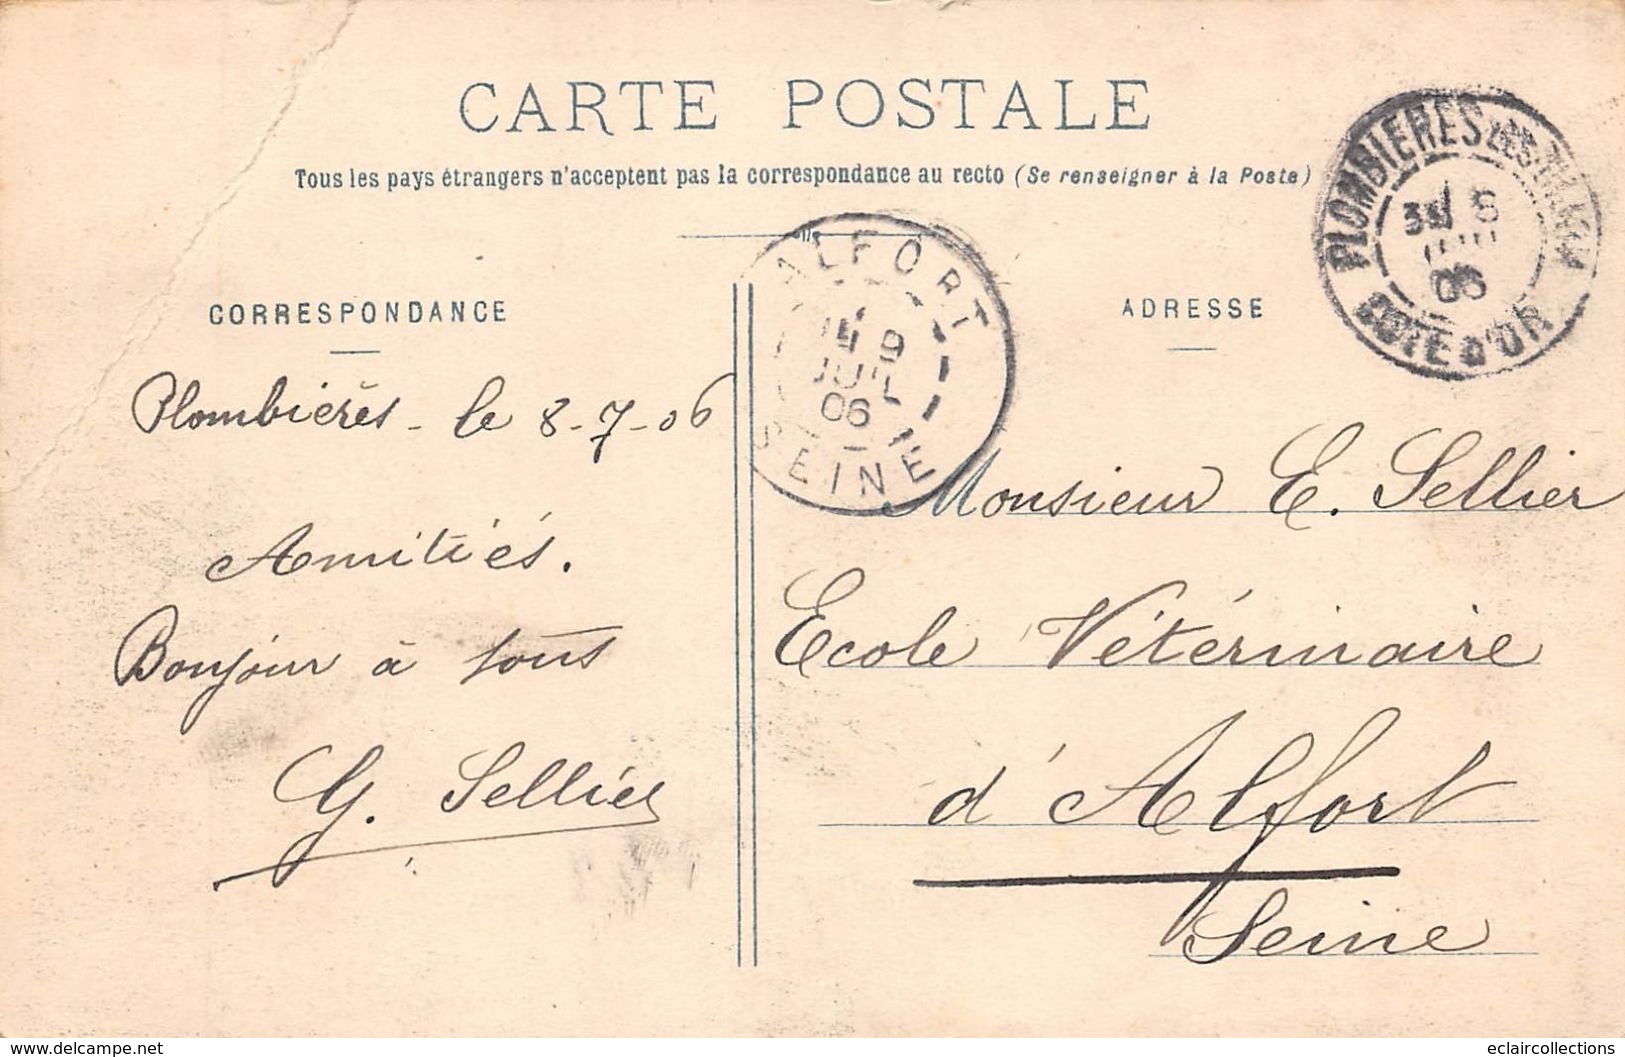 CARTE POSTALE
Tous les pays étrangers n'acceptent pas la correspondance au recto (Se renseigner à la Poste)
PLOMBIERES LES DIJON
8
06
COTE D'OR
ALFORT
9
JUIL
06
SEINE
CORRESPONDANCE
ADRESSE
Plombières - le 8-7-06
Amitiés.
Bonjour à tous
G. Sellier
Monsieur E. Sellier
Ecole Vétérinaire
d'Alfort
Seine
www.delcampe.net
eclaircollections